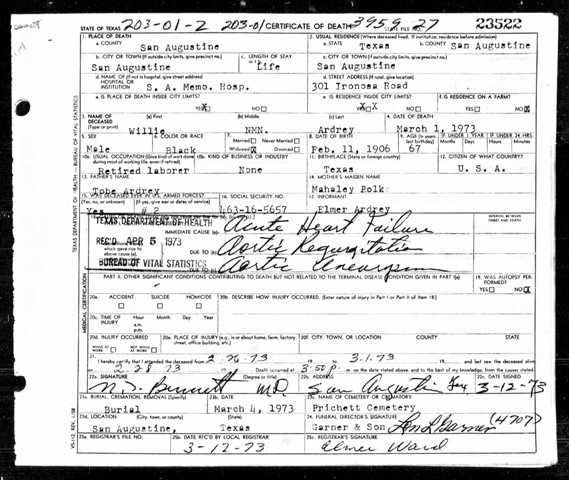 STATE OF TEXAS 203-01-2 203-01 CERTIFICATE OF DEATH 3959 27 23522
1. PLACE OF DEATH
2. USUAL RESIDENCE (Where deceased lived. If institution: residence before admission)
a. COUNTY San Augustine
a. STATE Texas b. COUNTY San Augustine
b. CITY OR TOWN (If outside city limits, give precinct no.) San Augustine
c. LENGTH OF STAY Life
c. CITY OR TOWN (If outside city limits, give precinct no.) San Augustine
d. NAME OF (If not in hospital, give street address) HOSPITAL OR INSTITUTION S. A. Memo. Hosp.
d. STREET ADDRESS (If rural, give location) 301 Ironosa Road
e. IS PLACE OF DEATH INSIDE CITY LIMITS? YES X NO
e. IS RESIDENCE INSIDE CITY LIMITS? YES X NO
f. IS RESIDENCE ON A FARM? YES NO X
3. NAME OF DECEASED (Type or print) (a) First Willie (b) Middle NMN. (c) Last Ardrey
4. DATE OF DEATH March 1, 1973
5. SEX Male
6. COLOR OR RACE Black
7. Married Never Married Widowed Divorced
8. DATE OF BIRTH Feb. 11, 1906
9. AGE (In years last birthday) 67
IF UNDER 1 YEAR Months Days
IF UNDER 24 HRS. Hours Min.
10a. USUAL OCCUPATION (Give kind of work done during most of working life, even if retired) Retired laborer
10b. KIND OF BUSINESS OR INDUSTRY None
11. BIRTHPLACE (State or foreign country) Texas
12. CITIZEN OF WHAT COUNTRY? U. S. A.
13. FATHER'S NAME Tobe Ardrey
14. MOTHER'S MAIDEN NAME Mahaley Polk
15. WAS DECEASED EVER IN U.S. ARMED FORCES? (Yes, no, or unknown) (If yes, give war or dates of service) Yes # 2
16. SOCIAL SECURITY NO. 463-16-5657
17. INFORMANT Elmer Ardrey
TEXAS DEPARTMENT OF HEALTH
REC'D APR 5 1973
BUREAU OF VITAL STATISTICS
INTERVAL BETWEEN ONSET AND DEATH
IMMEDIATE CAUSE (a) Acute Heart Failure
DUE TO (b) Aortic Regurgitation
DUE TO (c) Aortic Aneurysm
PART II. OTHER SIGNIFICANT CONDITIONS CONTRIBUTING TO DEATH BUT NOT RELATED TO THE TERMINAL DISEASE CONDITION GIVEN IN PART I(a)
19. WAS AUTOPSY PERFORMED? YES NO X
20a. ACCIDENT SUICIDE HOMICIDE
20b. DESCRIBE HOW INJURY OCCURRED. (Enter nature of injury in Part I or Part II of item 18)
20c. TIME OF INJURY Hour Month Day Year a.m. p.m.
20d. INJURY OCCURRED WHILE AT WORK NOT WHILE AT WORK
20e. PLACE OF INJURY (e.g., in or about home, farm, factory, street, office building, etc.)
20f. CITY, TOWN, OR LOCATION COUNTY STATE
21. I hereby certify that I attended the deceased from 2-26-73 19 to 3-1-73 19 and last saw the deceased alive
on 2-28-73 19 Death occurred at 3:50 P. m. on the date stated above, and to the best of my knowledge, from the causes stated.
22a. SIGNATURE (Degree or title) 22b. ADDRESS 22c. DATE SIGNED
N. J. Bennett M.D. San Augustine Tex 3-12-73
23a. BURIAL, CREMATION, REMOVAL (Specify) Burial
23b. DATE March 4, 1973
23c. NAME OF CEMETERY OR CREMATORY Prichett Cemetery
23d. LOCATION (City, town, or county) (State) San Augustine, Texas
24. FUNERAL DIRECTOR'S SIGNATURE Garner & Son (4707)
25a. REGISTRAR'S FILE NO.
25b. DATE REC'D BY LOCAL REGISTRAR 3-12-73
25c. REGISTRAR'S SIGNATURE Elmer Ward
TEXAS DEPARTMENT OF HEALTH — BUREAU OF VITAL STATISTICS
MEDICAL CERTIFICATION